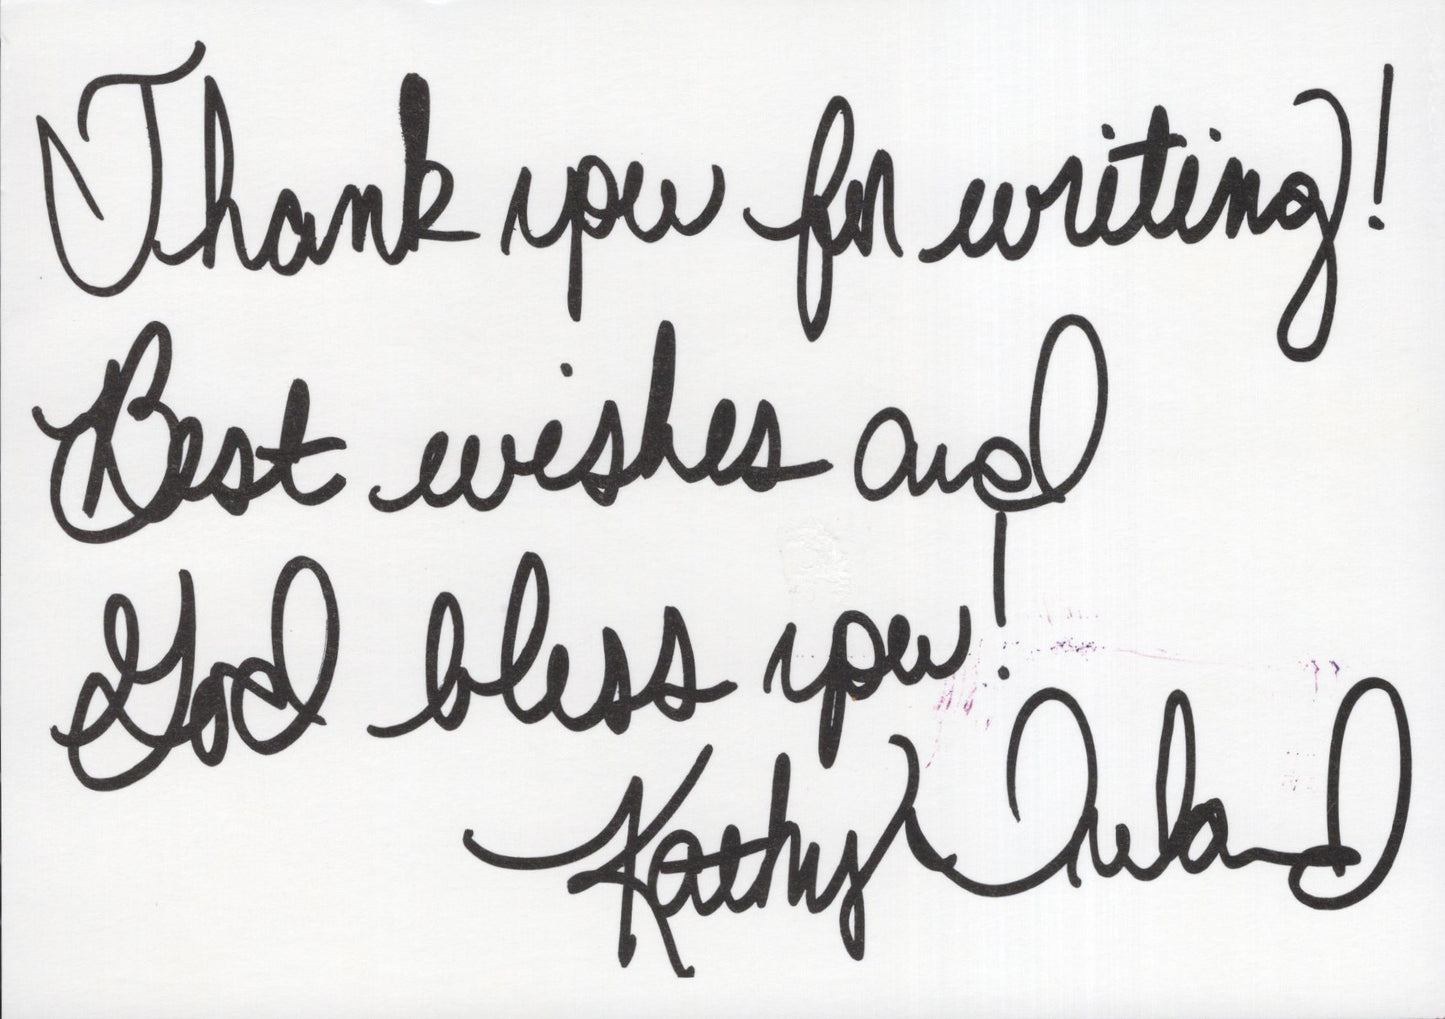 Thank you for writing!
Best wishes and
God bless you!
Kathy Ireland